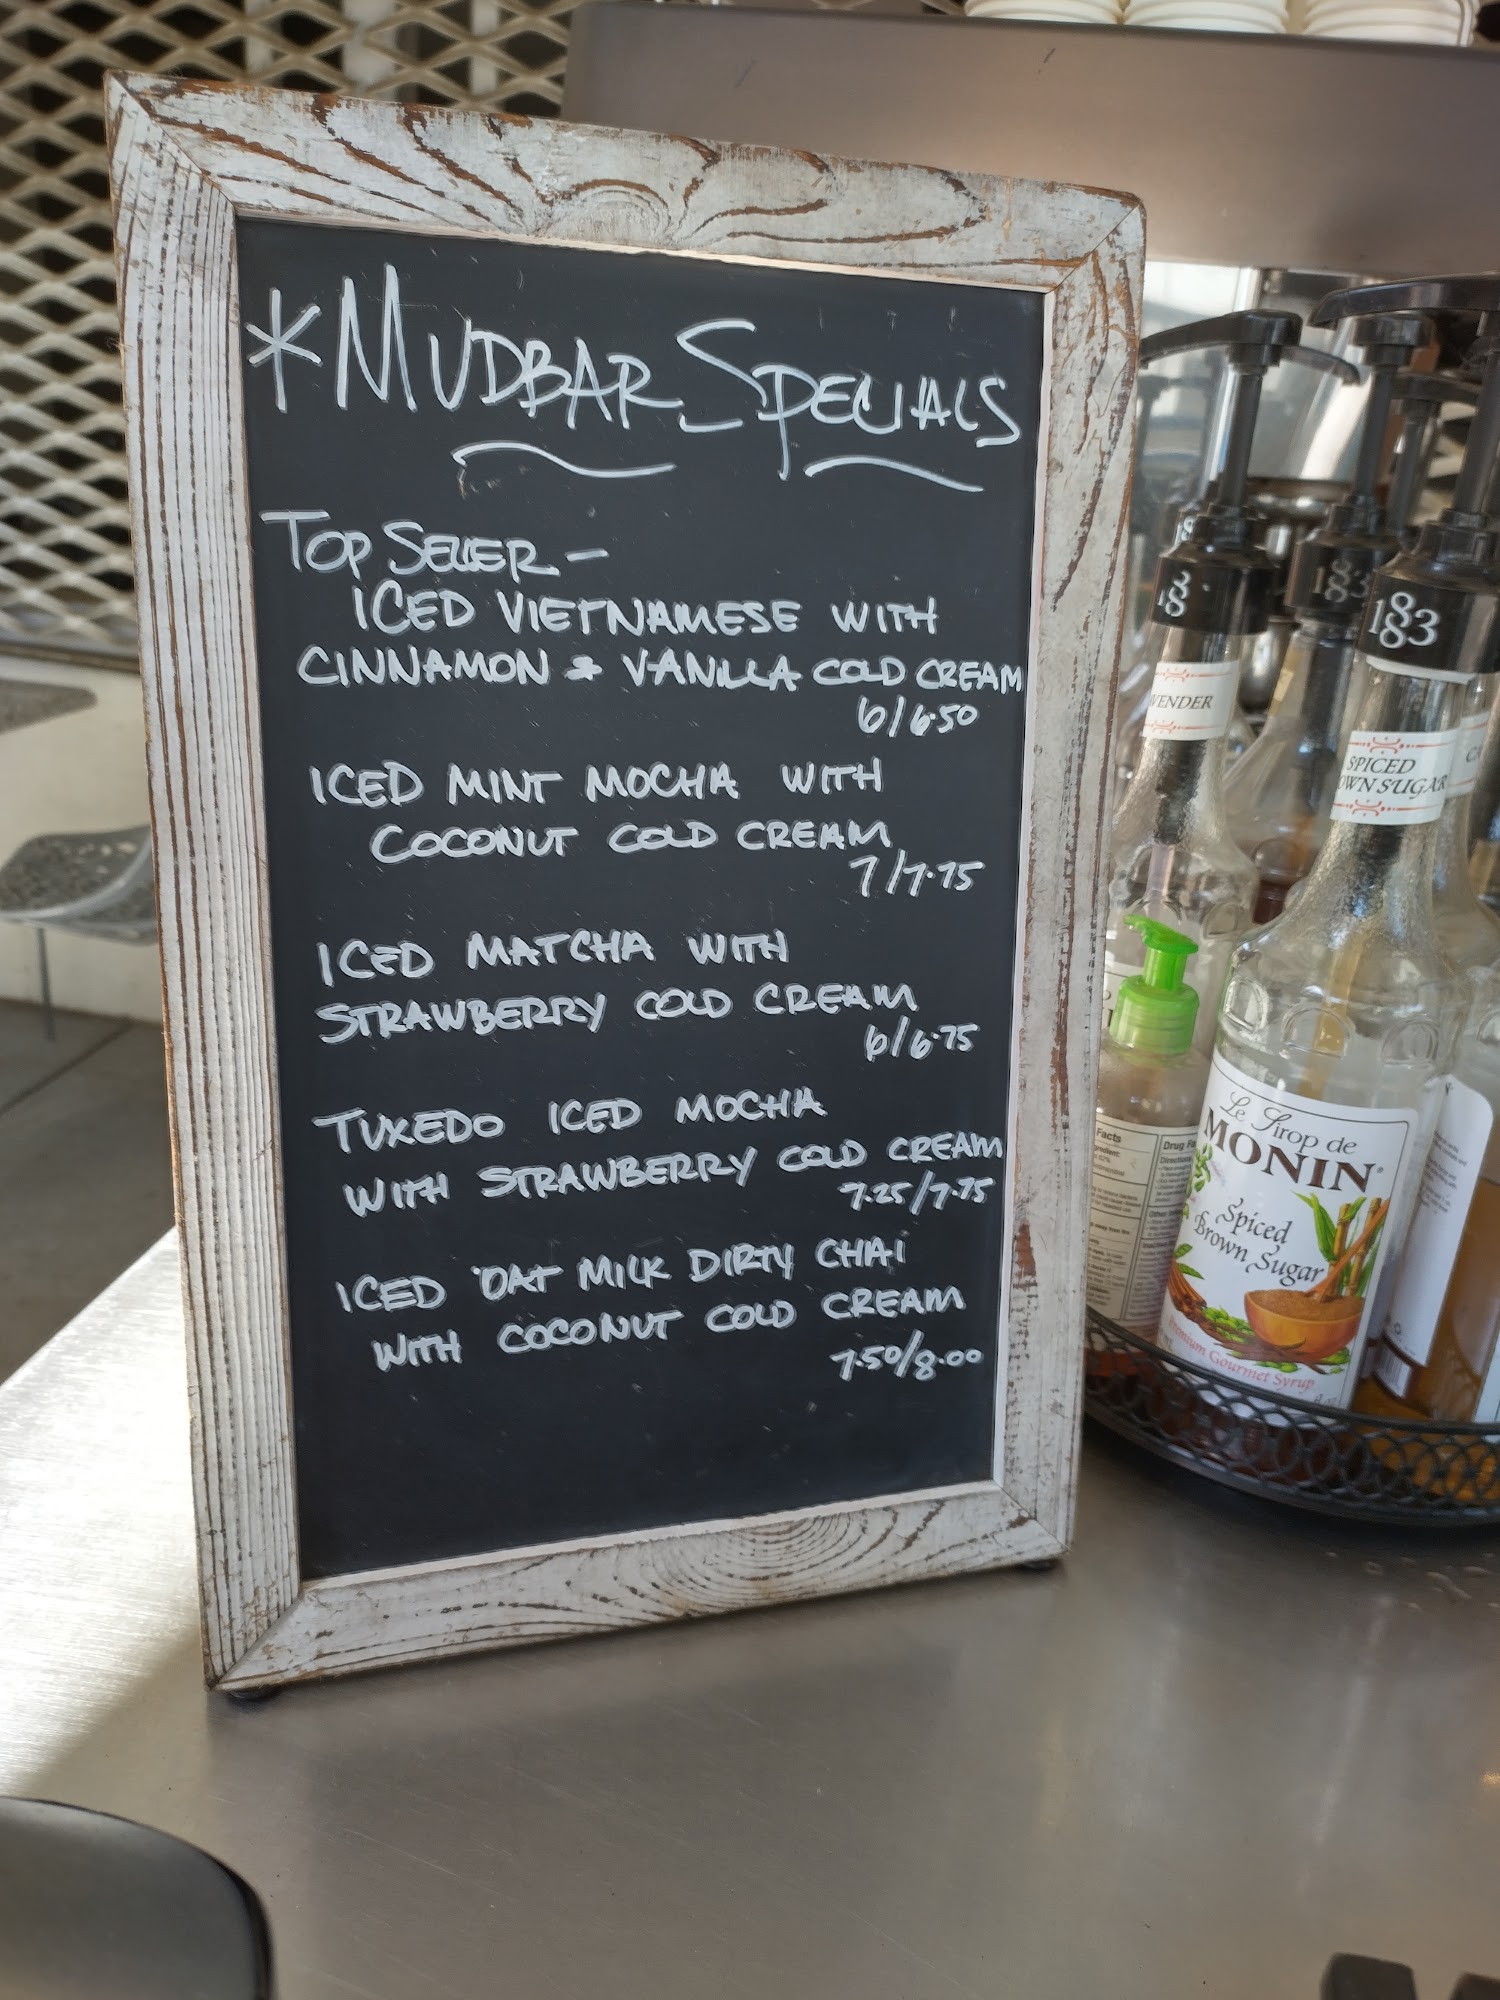 *MUDBAR SPECIALS
TOP SELLER -
ICED VIETNAMESE WITH
CINNAMON & VANILLA COLD CREAM
6/6.50
ICED MINT MOCHA WITH
COCONUT COLD CREAM
7/7.75
ICED MATCHA WITH
STRAWBERRY COLD CREAM
6/6.75
TUXEDO ICED MOCHA
WITH STRAWBERRY COLD CREAM
7.25/7.75
ICED OAT MILK DIRTY CHAI
WITH COCONUT COLD CREAM
7.50/8.00
1883
1883
VENDER
SPICED
OWN SUGAR
Le Sirop de
MONIN®
Spiced
Brown Sugar
Premium Gourmet Syrup
Facts
Drug Fa